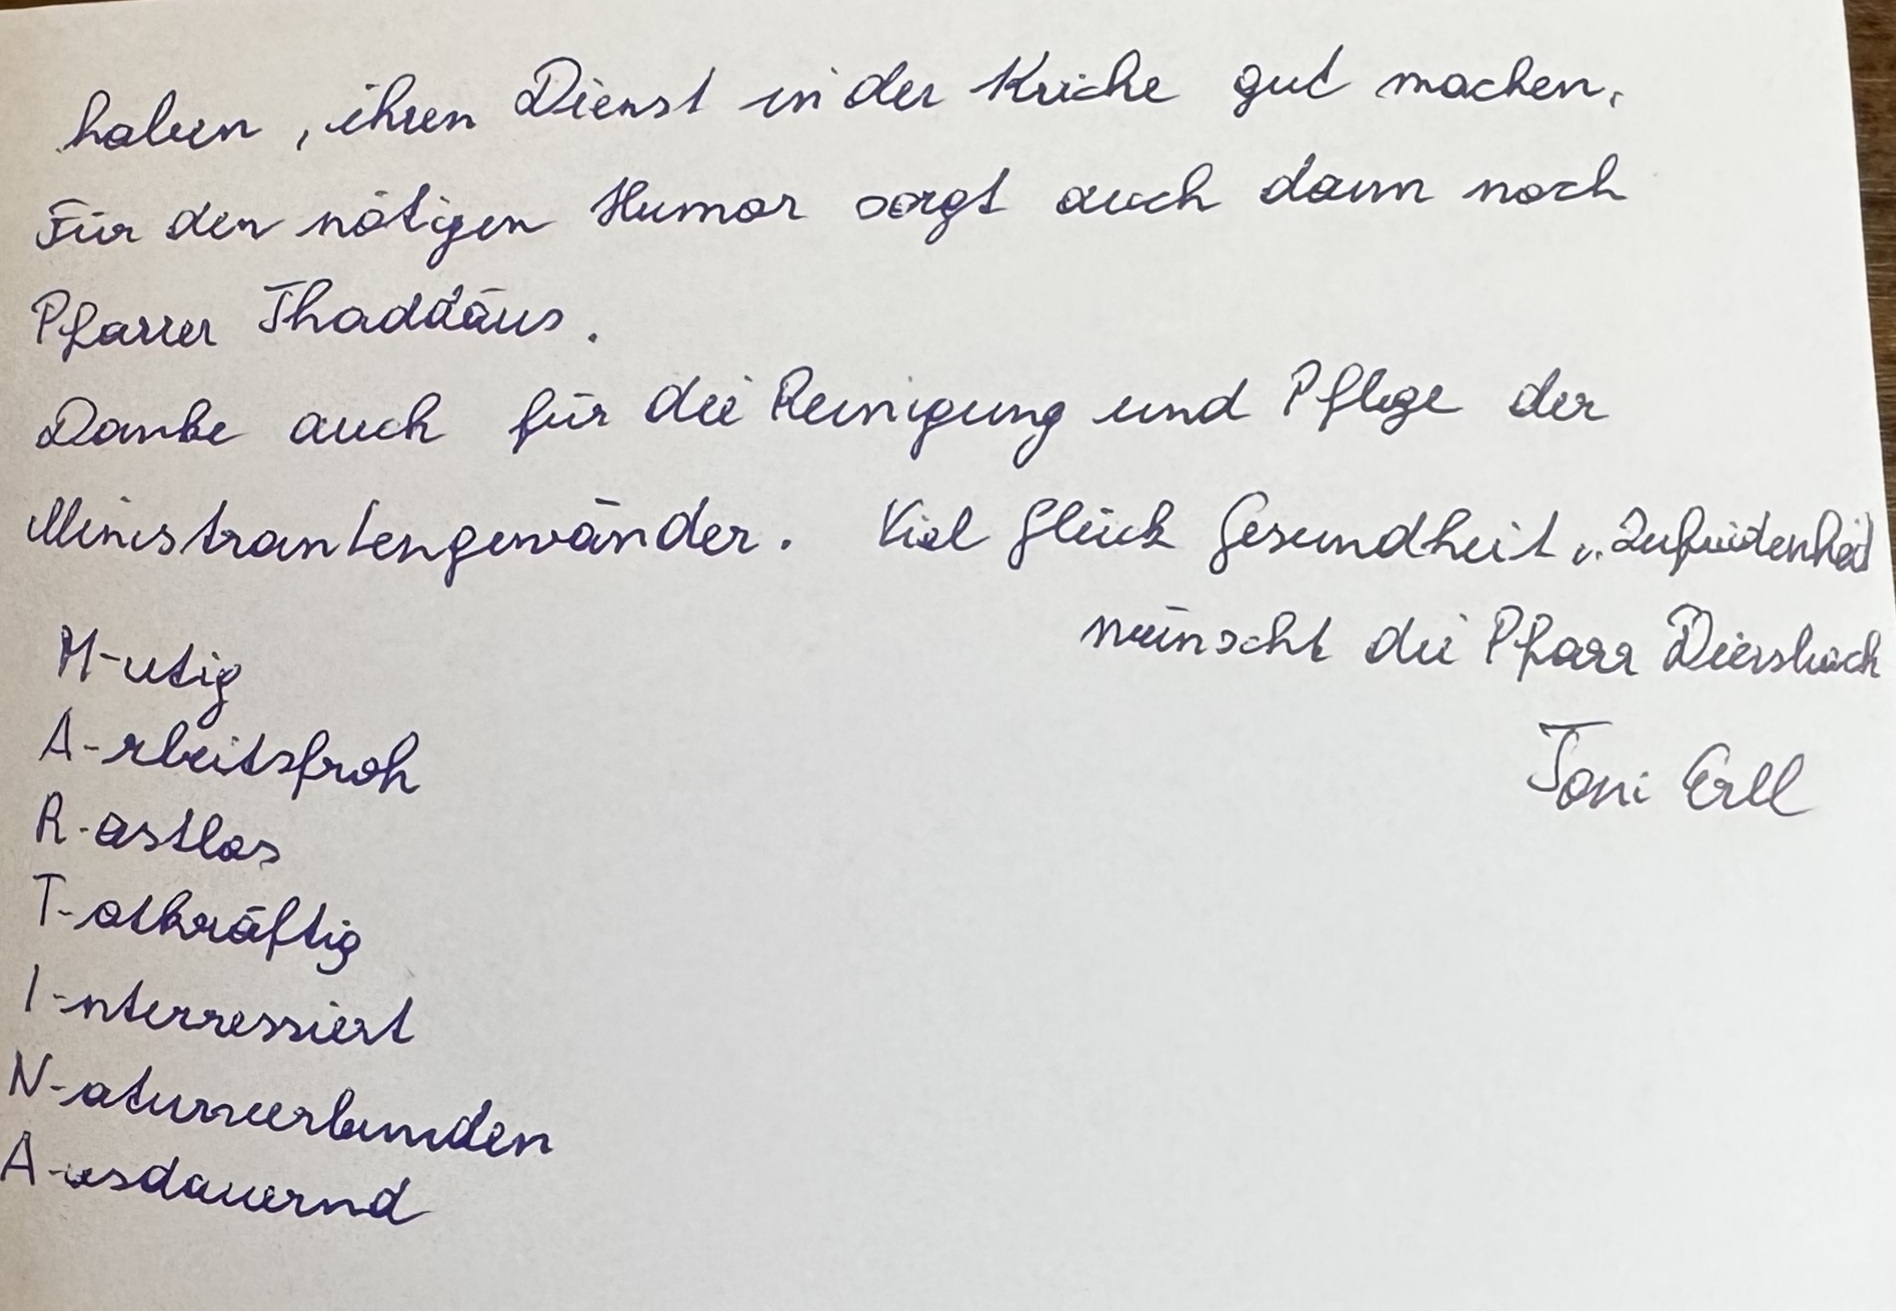 haben, ihren Dienst in der Kirche gut machen.
Für den nötigen Humor sorgt auch dann noch
Pfarrer Thaddäus.
Danke auch für die Reinigung und Pflege der
Ministrantengewänder. Viel Glück Gesundheit u. Zufriedenheit
wünscht die Pfarr Diersbach
Toni Ertl
M-utig
A-rbeitsfroh
R-astlos
T-atkräftig
I-nterressiert
N-aturverbunden
A-usdauernd